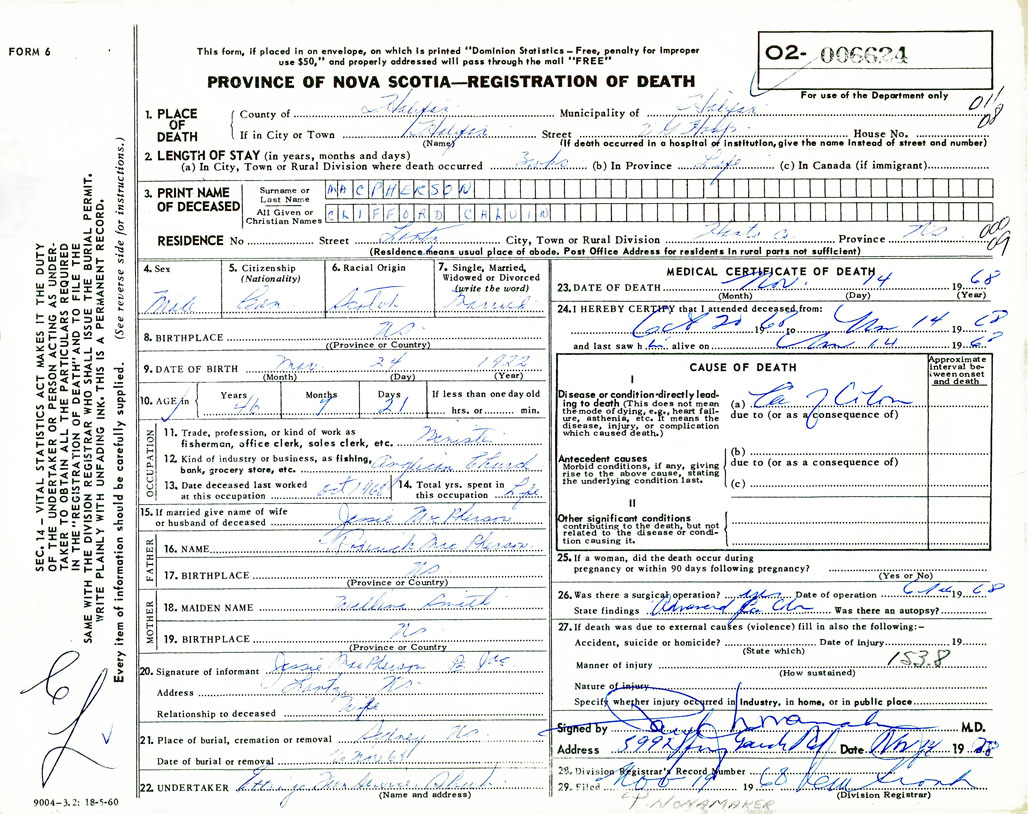 FORM 6
This form, if placed in an envelope, on which is printed "Dominion Statistics – Free, penalty for improper
use $50," and properly addressed will pass through the mail "FREE"
PROVINCE OF NOVA SCOTIA—REGISTRATION OF DEATH
O2- 006634
For use of the Department only
011
08
1. PLACE OF DEATH
County of Halifax Municipality of Halifax
If in City or Town Halifax Street V G Hosp House No.
(Name) (If death occurred in a hospital or institution, give the name instead of street and number)
2. LENGTH OF STAY (in years, months and days)
(a) In City, Town or Rural Division where death occurred (b) In Province Life (c) In Canada (if immigrant)
3. PRINT NAME OF DECEASED
Surname or Last Name MACPHERSON
All Given or Christian Names CLIFFORD CALVIN
000
09
RESIDENCE No Street Lantz City, Town or Rural Division Hants Co. Province N.S.
(Residence means usual place of abode. Post Office Address for residents in rural parts not sufficient)
4. Sex Male
5. Citizenship (Nationality) Cdn
6. Racial Origin Scotch
7. Single, Married, Widowed or Divorced (write the word) Married
8. BIRTHPLACE N.S.
((Province or Country)
9. DATE OF BIRTH Mar. 24 1922
(Month) (Day) (Year)
10. AGE in Years 46 Months 7 Days 21 If less than one day old hrs. or min.
OCCUPATION
11. Trade, profession, or kind of work as
fisherman, office clerk, sales clerk, etc.
12. Kind of industry or business, as fishing,
bank, grocery store, etc. Anglican Church
13. Date deceased last worked
at this occupation Oct 1968
14. Total yrs. spent in
this occupation Life
15. If married give name of wife
or husband of deceased Jessie MacPherson
FATHER
16. NAME Roderick MacPherson
17. BIRTHPLACE N.S.
(Province or Country)
MOTHER
18. MAIDEN NAME Smith
19. BIRTHPLACE N.S.
(Province or Country
20. Signature of informant Jessie MacPherson
Address Lantz N.S.
Relationship to deceased Wife
21. Place of burial, cremation or removal Sydney N.S.
Date of burial or removal
22. UNDERTAKER
(Name and address)
9004-3.2: 18-5-60
MEDICAL CERTIFICATE OF DEATH
23. DATE OF DEATH Nov. 14 19 68
(Month) (Day) (Year)
24. I HEREBY CERTIFY that I attended deceased from:
Oct 20 1968 to Nov 14 19 68
and last saw him alive on Nov 14 19 68
CAUSE OF DEATH
Approximate interval between onset and death
I
Disease or condition directly leading to death (This does not mean
the mode of dying, e.g., heart failure, asthenia, etc. It means the
disease, injury, or complication
which caused death.)
(a) Ca of Colon
due to (or as a consequence of)
Antecedent causes
Morbid conditions, if any, giving
rise to the above cause, stating
the underlying condition last.
(b)
due to (or as a consequence of)
(c)
II
Other significant conditions
contributing to the death, but not
related to the disease or condition causing it.
25. If a woman, did the death occur during
pregnancy or within 90 days following pregnancy?
(Yes or No)
26. Was there a surgical operation? yes Date of operation 19 68
State findings Advanced Ca Colon Was there an autopsy?
27. If death was due to external causes (violence) fill in also the following:–
Accident, suicide or homicide? Date of injury 19
(State which)
153.8
Manner of injury
(How sustained)
Nature of injury
Specify whether injury occurred in industry, in home, or in public place
Signed by M.D.
Address 5992 Spring Garden Rd Date Nov 14 19 68
28. Division Registrar's Record Number
29. Filed Nov 19 19 68
(Division Registrar)
P. NONAMAKER
SEC. 14 – VITAL STATISTICS ACT MAKES IT THE DUTY
OF THE UNDERTAKER OR PERSON ACTING AS UNDERTAKER TO OBTAIN ALL THE PARTICULARS REQUIRED
IN THE "REGISTRATION OF DEATH" AND TO FILE THE
SAME WITH THE DIVISION REGISTRAR WHO SHALL ISSUE THE BURIAL PERMIT.
WRITE PLAINLY WITH UNFADING INK. THIS IS A PERMANENT RECORD.
Every item of information should be carefully supplied. (See reverse side for instructions.)